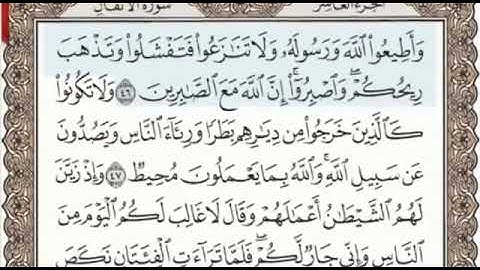 الجزء العاشر سورة الأنفال
وَأَطِيعُوا۟ ٱللَّهَ وَرَسُولَهُۥ وَلَا تَنَٰزَعُوا۟ فَتَفْشَلُوا۟ وَتَذْهَبَ
رِيحُكُمْ ۖ وَٱصْبِرُوٓا۟ ۚ إِنَّ ٱللَّهَ مَعَ ٱلصَّٰبِرِينَ ٤٦ وَلَا تَكُونُوا۟
كَٱلَّذِينَ خَرَجُوا۟ مِن دِيَٰرِهِم بَطَرًا وَرِئَآءَ ٱلنَّاسِ وَيَصُدُّونَ
عَن سَبِيلِ ٱللَّهِ ۚ وَٱللَّهُ بِمَا يَعْمَلُونَ مُحِيطٌ ٤٧ وَإِذْ زَيَّنَ
لَهُمُ ٱلشَّيْطَٰنُ أَعْمَٰلَهُمْ وَقَالَ لَا غَالِبَ لَكُمُ ٱلْيَوْمَ مِنَ
ٱلنَّاسِ وَإِنِّى جَارٌ لَّكُمْ ۖ فَلَمَّا تَرَآءَتِ ٱلْفِئَتَانِ نَكَصَ